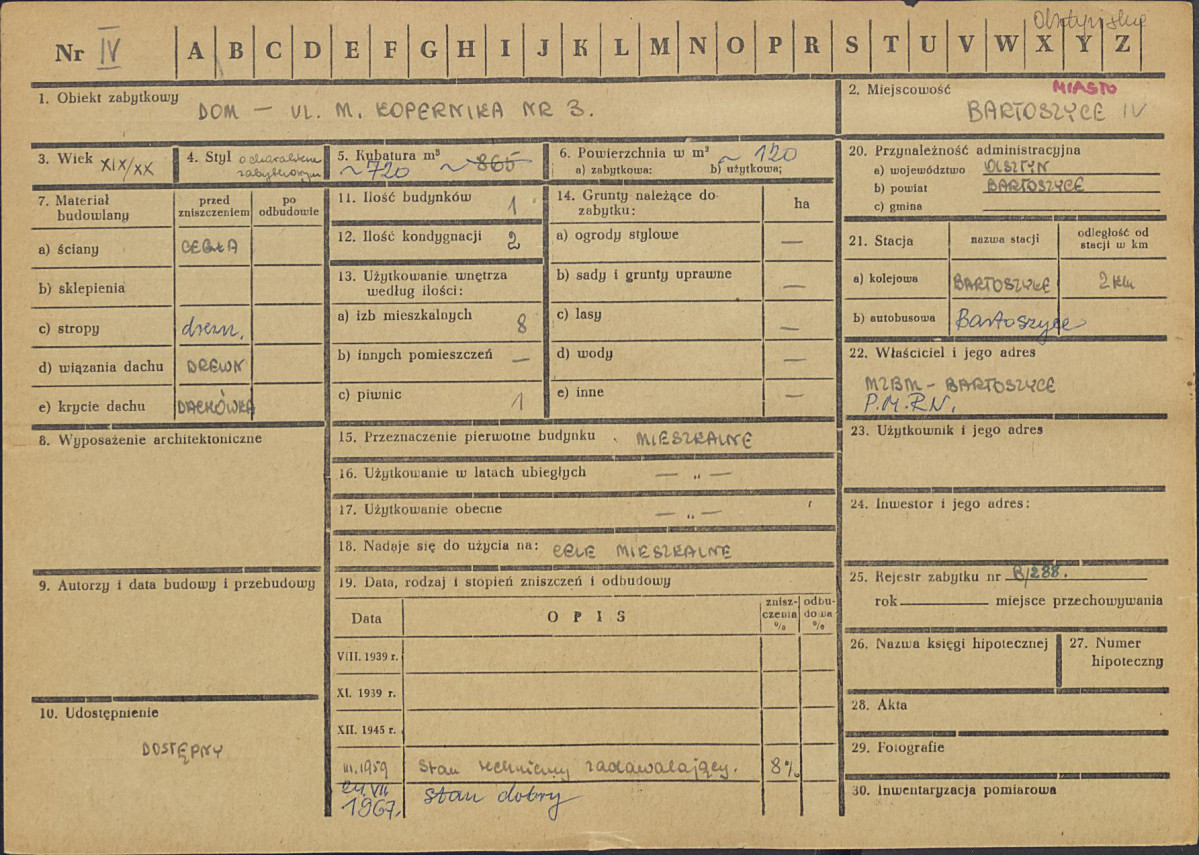 Olsztyńskie
Nr IV A B C D E F G H I J K L M N O P R S T U V W X Y Z
1. Obiekt zabytkowy
DOM – UL. M. KOPERNIKA NR 3.
2. Miejscowość
MIASTO
BARTOSZYCE IV
3. Wiek XIX/XX
4. Styl o charakterze
zabytkowym
5. Kubatura m³
~720 ~865
6. Powierzchnia w m² ~120
a) zabytkowa: b) użytkowa;
7. Materiał budowlany
przed zniszczeniem
po odbudowie
a) ściany CEGŁA
b) sklepienia
c) stropy drewn.
d) wiązania dachu DREWN
e) krycie dachu DACHÓWKA
8. Wyposażenie architektoniczne
9. Autorzy i data budowy i przebudowy
10. Udostępnienie
DOSTĘPNY
11. Ilość budynków 1
12. Ilość kondygnacji 2
13. Użytkowanie wnętrza
według ilości:
a) izb mieszkalnych 8
b) innych pomieszczeń —
c) piwnic 1
14. Grunty należące do
zabytku: ha
a) ogrody stylowe —
b) sady i grunty uprawne —
c) lasy —
d) wody —
e) inne —
15. Przeznaczenie pierwotne budynku MIESZKALNE
16. Użytkowanie w latach ubiegłych — „ —
17. Użytkowanie obecne — „ —
18. Nadaje się do użycia na: CELE MIESZKALNE
19. Data, rodzaj i stopień zniszczeń i odbudowy
Data
OPIS
znisz-
czenia
%
odbu-
dowa
%
VIII. 1939 r.
XI. 1939 r.
XII. 1945 r.
III.1959 Stan techniczny zadawalający. 8%
VII
1967. stan dobry
20. Przynależność administracyjna
a) województwo OLSZTYN
b) powiat BARTOSZYCE
c) gmina
21. Stacja
nazwa stacji
odległość od
stacji w km
a) kolejowa BARTOSZYCE 2 km
b) autobusowa Bartoszyce
22. Właściciel i jego adres
MZBM – BARTOSZYCE
P.M.R.N.
23. Użytkownik i jego adres
24. Inwestor i jego adres:
25. Rejestr zabytku nr B/288.
rok miejsce przechowywania
26. Nazwa księgi hipotecznej
27. Numer
hipoteczny
28. Akta
29. Fotografie
30. Inwentaryzacja pomiarowa